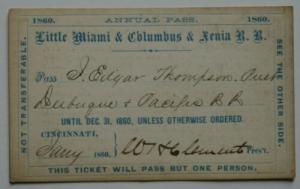 1860. ANNUAL PASS. 1860.
Little Miami & Columbus & Xenia R. R.
NOT TRANSFERABLE.
SEE THE OTHER SIDE.
Pass J. Edgar Thompson. Prest
Dubuque & Pacific RR
UNTIL DEC. 31, 1860, UNLESS OTHERWISE ORDERED.
CINCINNATI,
Jany 1860. W H Clement Pres't.
THIS TICKET WILL PASS BUT ONE PERSON.